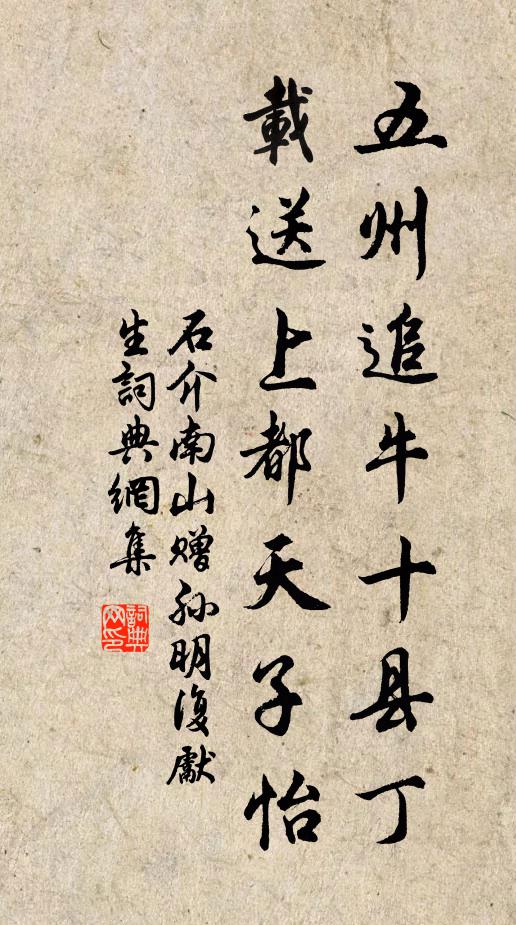 五州追牛十县丁
載送上都天子怡
石介南山赠孙明復獻
生詞典網集
詞典网印